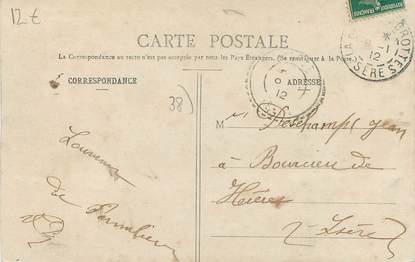 12 €
CARTE POSTALE
La Correspondance au recto n'est pas acceptée par tous les Pays Étrangers. (Se renseigner à la Poste.)
CORRESPONDANCE
ADRESSE
38)
12
GROTTES
1-1
12
ISÈRE
M Deschamps Jean
à Bourcieu de
Hières
Isère
Souvenir
du